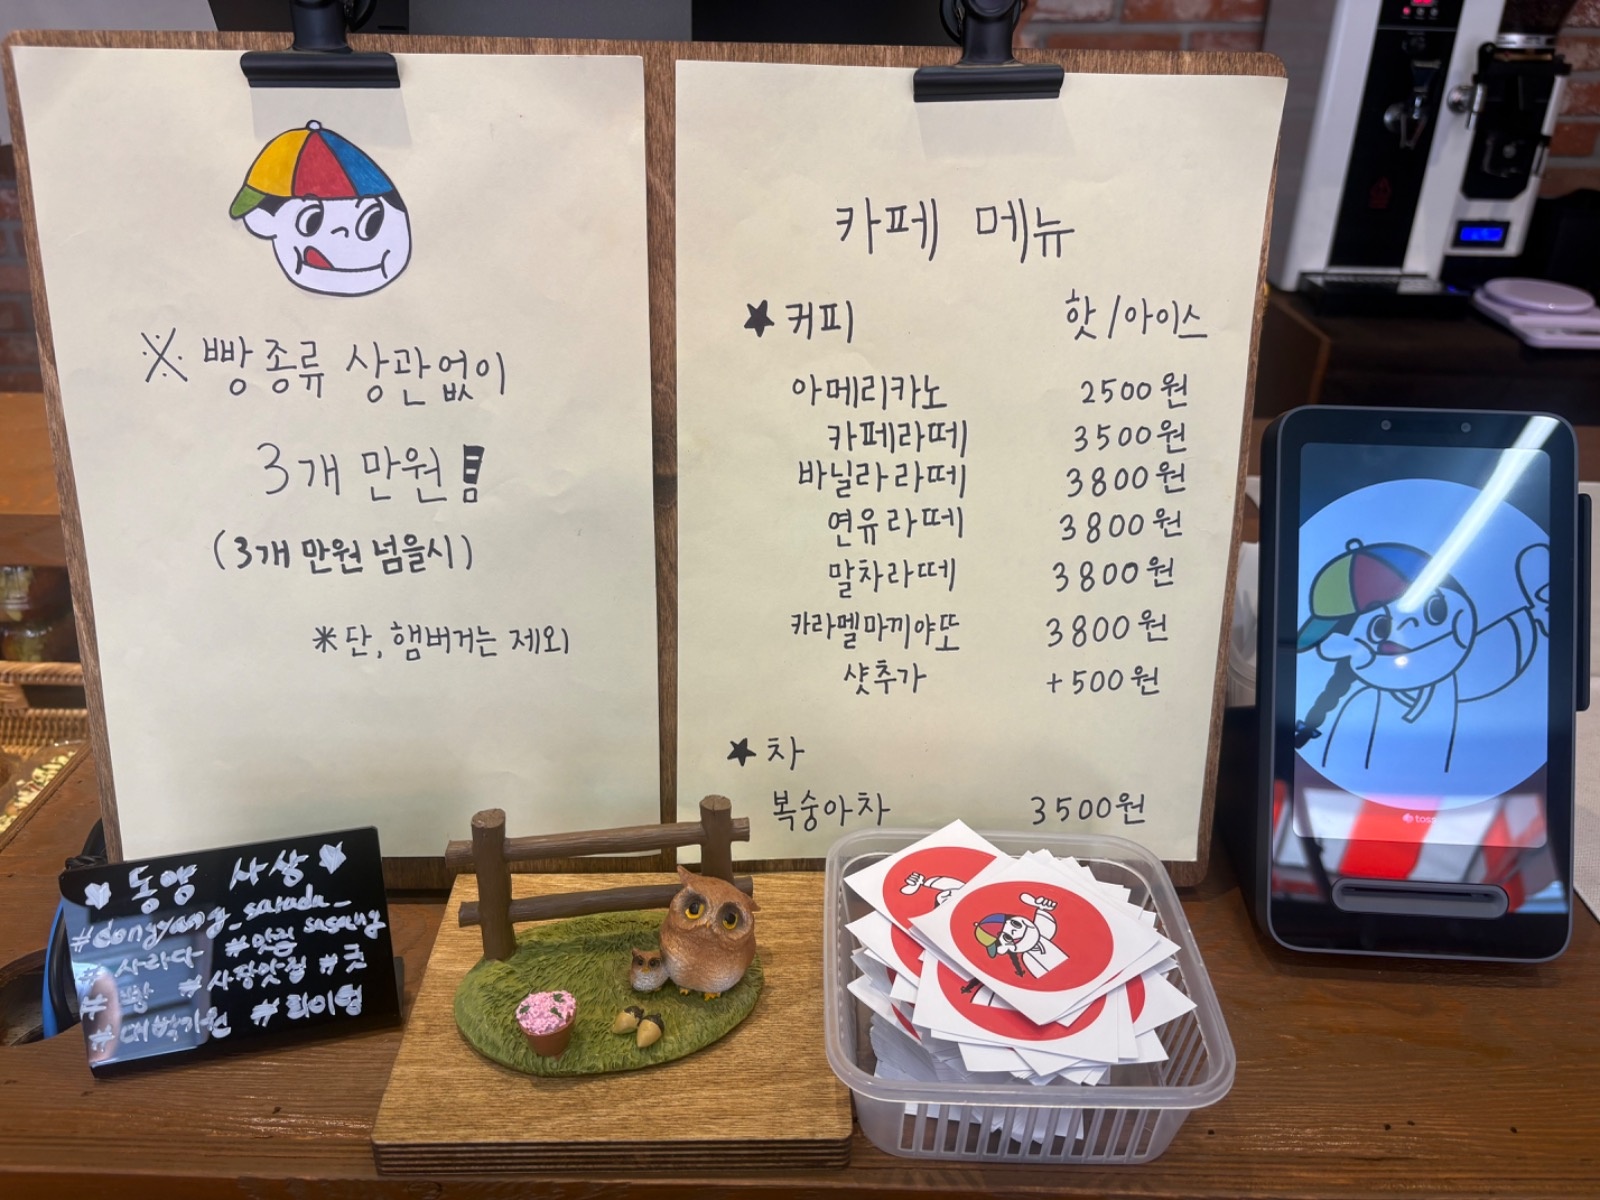 ※ 빵종류 상관없이
3개 만원!
(3개 만원 넘을시)
* 단, 햄버거는 제외
카페 메뉴
★ 커피 핫/아이스
아메리카노 2500원
카페라떼 3500원
바닐라라떼 3800원
연유라떼 3800원
말차라떼 3800원
카라멜마끼야또 3800원
샷추가 +500원
★ 차
복숭아차 3500원
동양 사상
#dongyang_sarada_
sasang
#사라다 #맛집
#빵 #사장맛집 #굿
#대박기원 #화이팅
toss